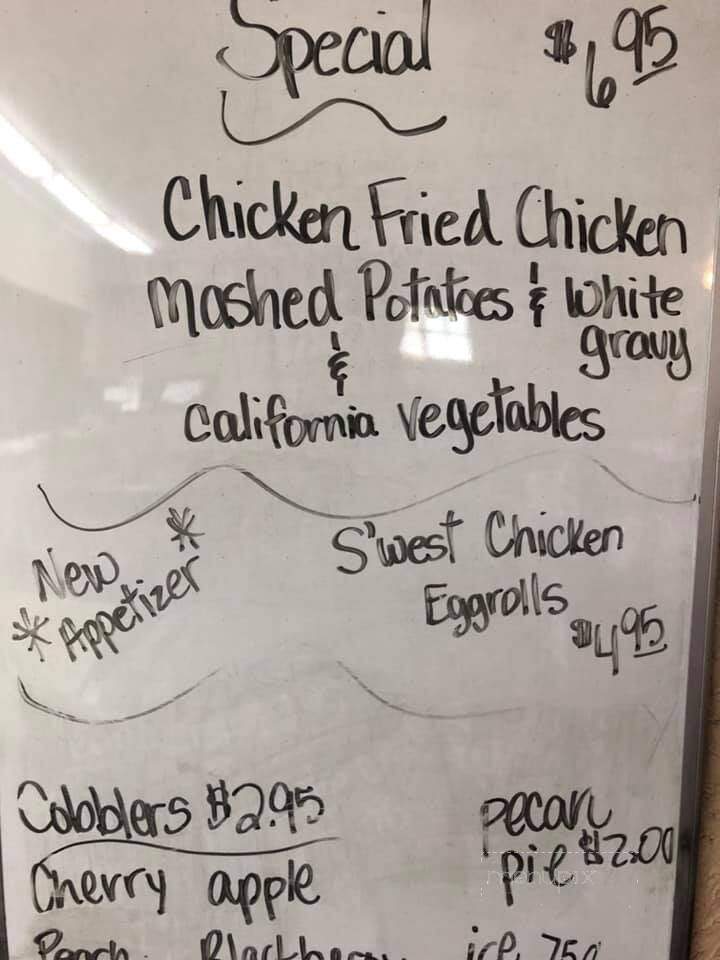 Special $6.95
Chicken Fried Chicken
Mashed Potatoes & White
gravy
&
California vegetables
New *
* Appetizer
S'west Chicken
Eggrolls
$4.95
Cobblers $2.95
Cherry apple
Peach Blackberry
pecan
pie $2.00
ice 75¢
menupix